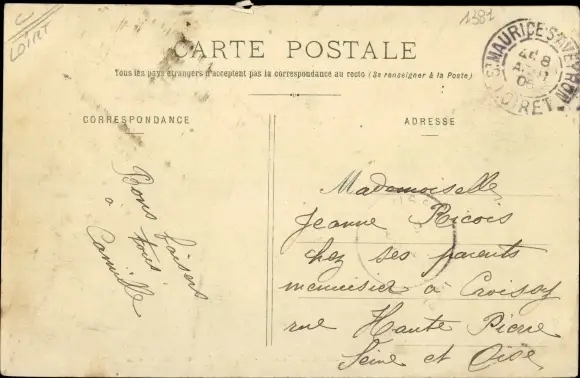 C
LOIRT
1381
CARTE POSTALE
Tous les pays étrangers n'acceptent pas la correspondance au recto (Se renseigner à la Poste)
CORRESPONDANCE
ADRESSE
ST MAURICE S AVEYRON
LOIRET
08
Bons baisers
à tous
Camille
Mademoiselle
Jeanne Ricois
chez ses parents
menuisier à Croissy
rue Haute Pierre
Seine et Oise